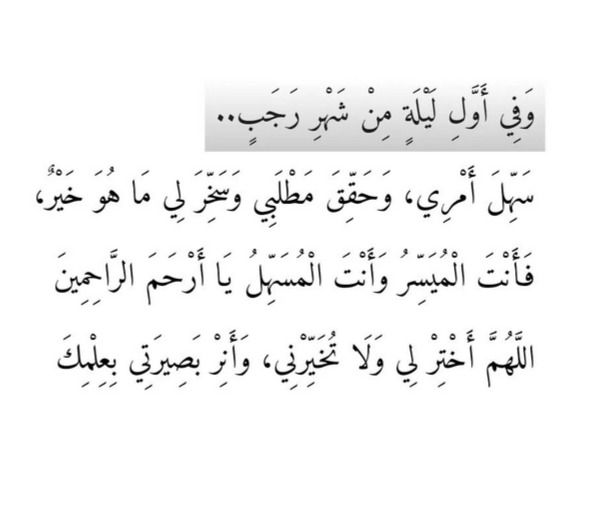 وَفِي أَوَّلِ لَيْلَةٍ مِنْ شَهْرِ رَجَبٍ..
سَهِّلَ أَمْرِي، وَحَقِّقَ مَطْلَبِي وَسَخِّرَ لِي مَا هُوَ خَيْرٌ،
فَأَنْتَ الْمُيَسِّرُ وَأَنْتَ الْمُسَهِّلُ يَا أَرْحَمَ الرَّاحِمِينَ
اللَّهُمَّ أَخْتِرْ لِي وَلَا تُخَيِّرْنِي، وَأَنِرْ بَصِيرَتِي بِعِلْمِكَ